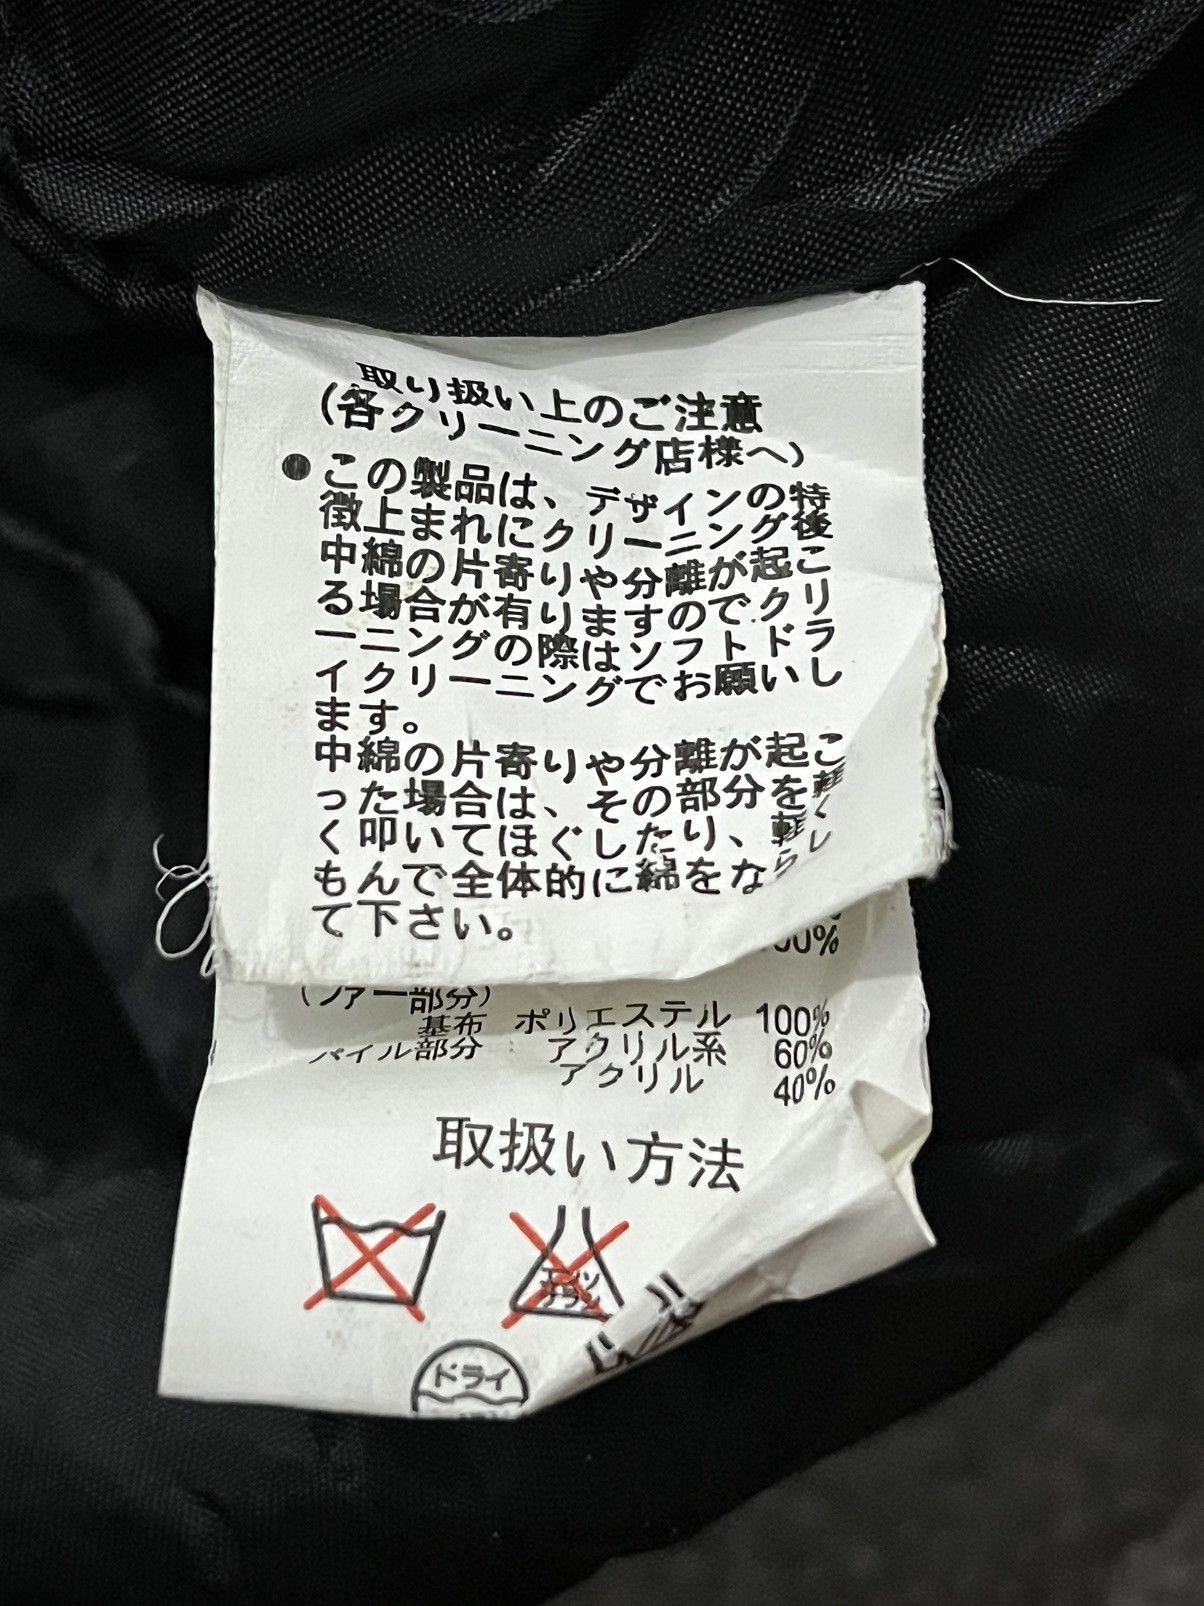 取り扱い上のご注意
(各クリーニング店様へ)
●この製品は、デザインの特
徴上まれにクリーニング後
中綿の片寄りや分離が起こ
る場合が有りますのでクリ
ーニングの際はソフトドラ
イクリーニングでお願いし
ます。
中綿の片寄りや分離が起こ
った場合は、その部分を軽
く叩いてほぐしたり、軽く
もんで全体的に綿をなら
て下さい。
100%
(ファー部分)
基布 ポリエステル 100%
パイル部分 アクリル系 60%
アクリル 40%
取扱い方法
エンソ
サラシ
ドライ